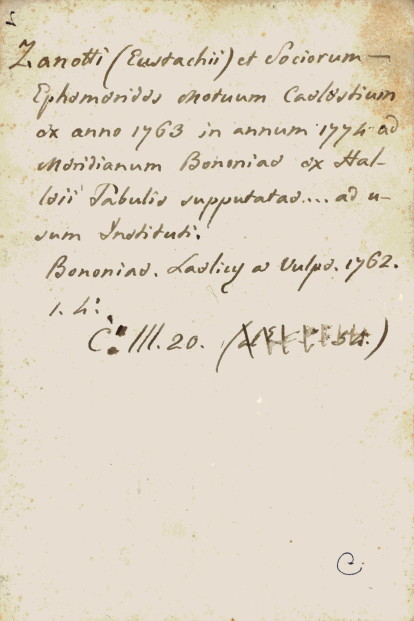 Zanotti (Eustachii) et Sociorum —
Ephemerides Motuum Caelestium
ex anno 1763 in annum 1774 ad
Meridianum Bononiae ex Hal-
leii Tabulis supputatae.... ad u-
sum Instituti.
Bononiae. Laelius a Vulpe. 1762.
1. 4:
C. III. 20.
C